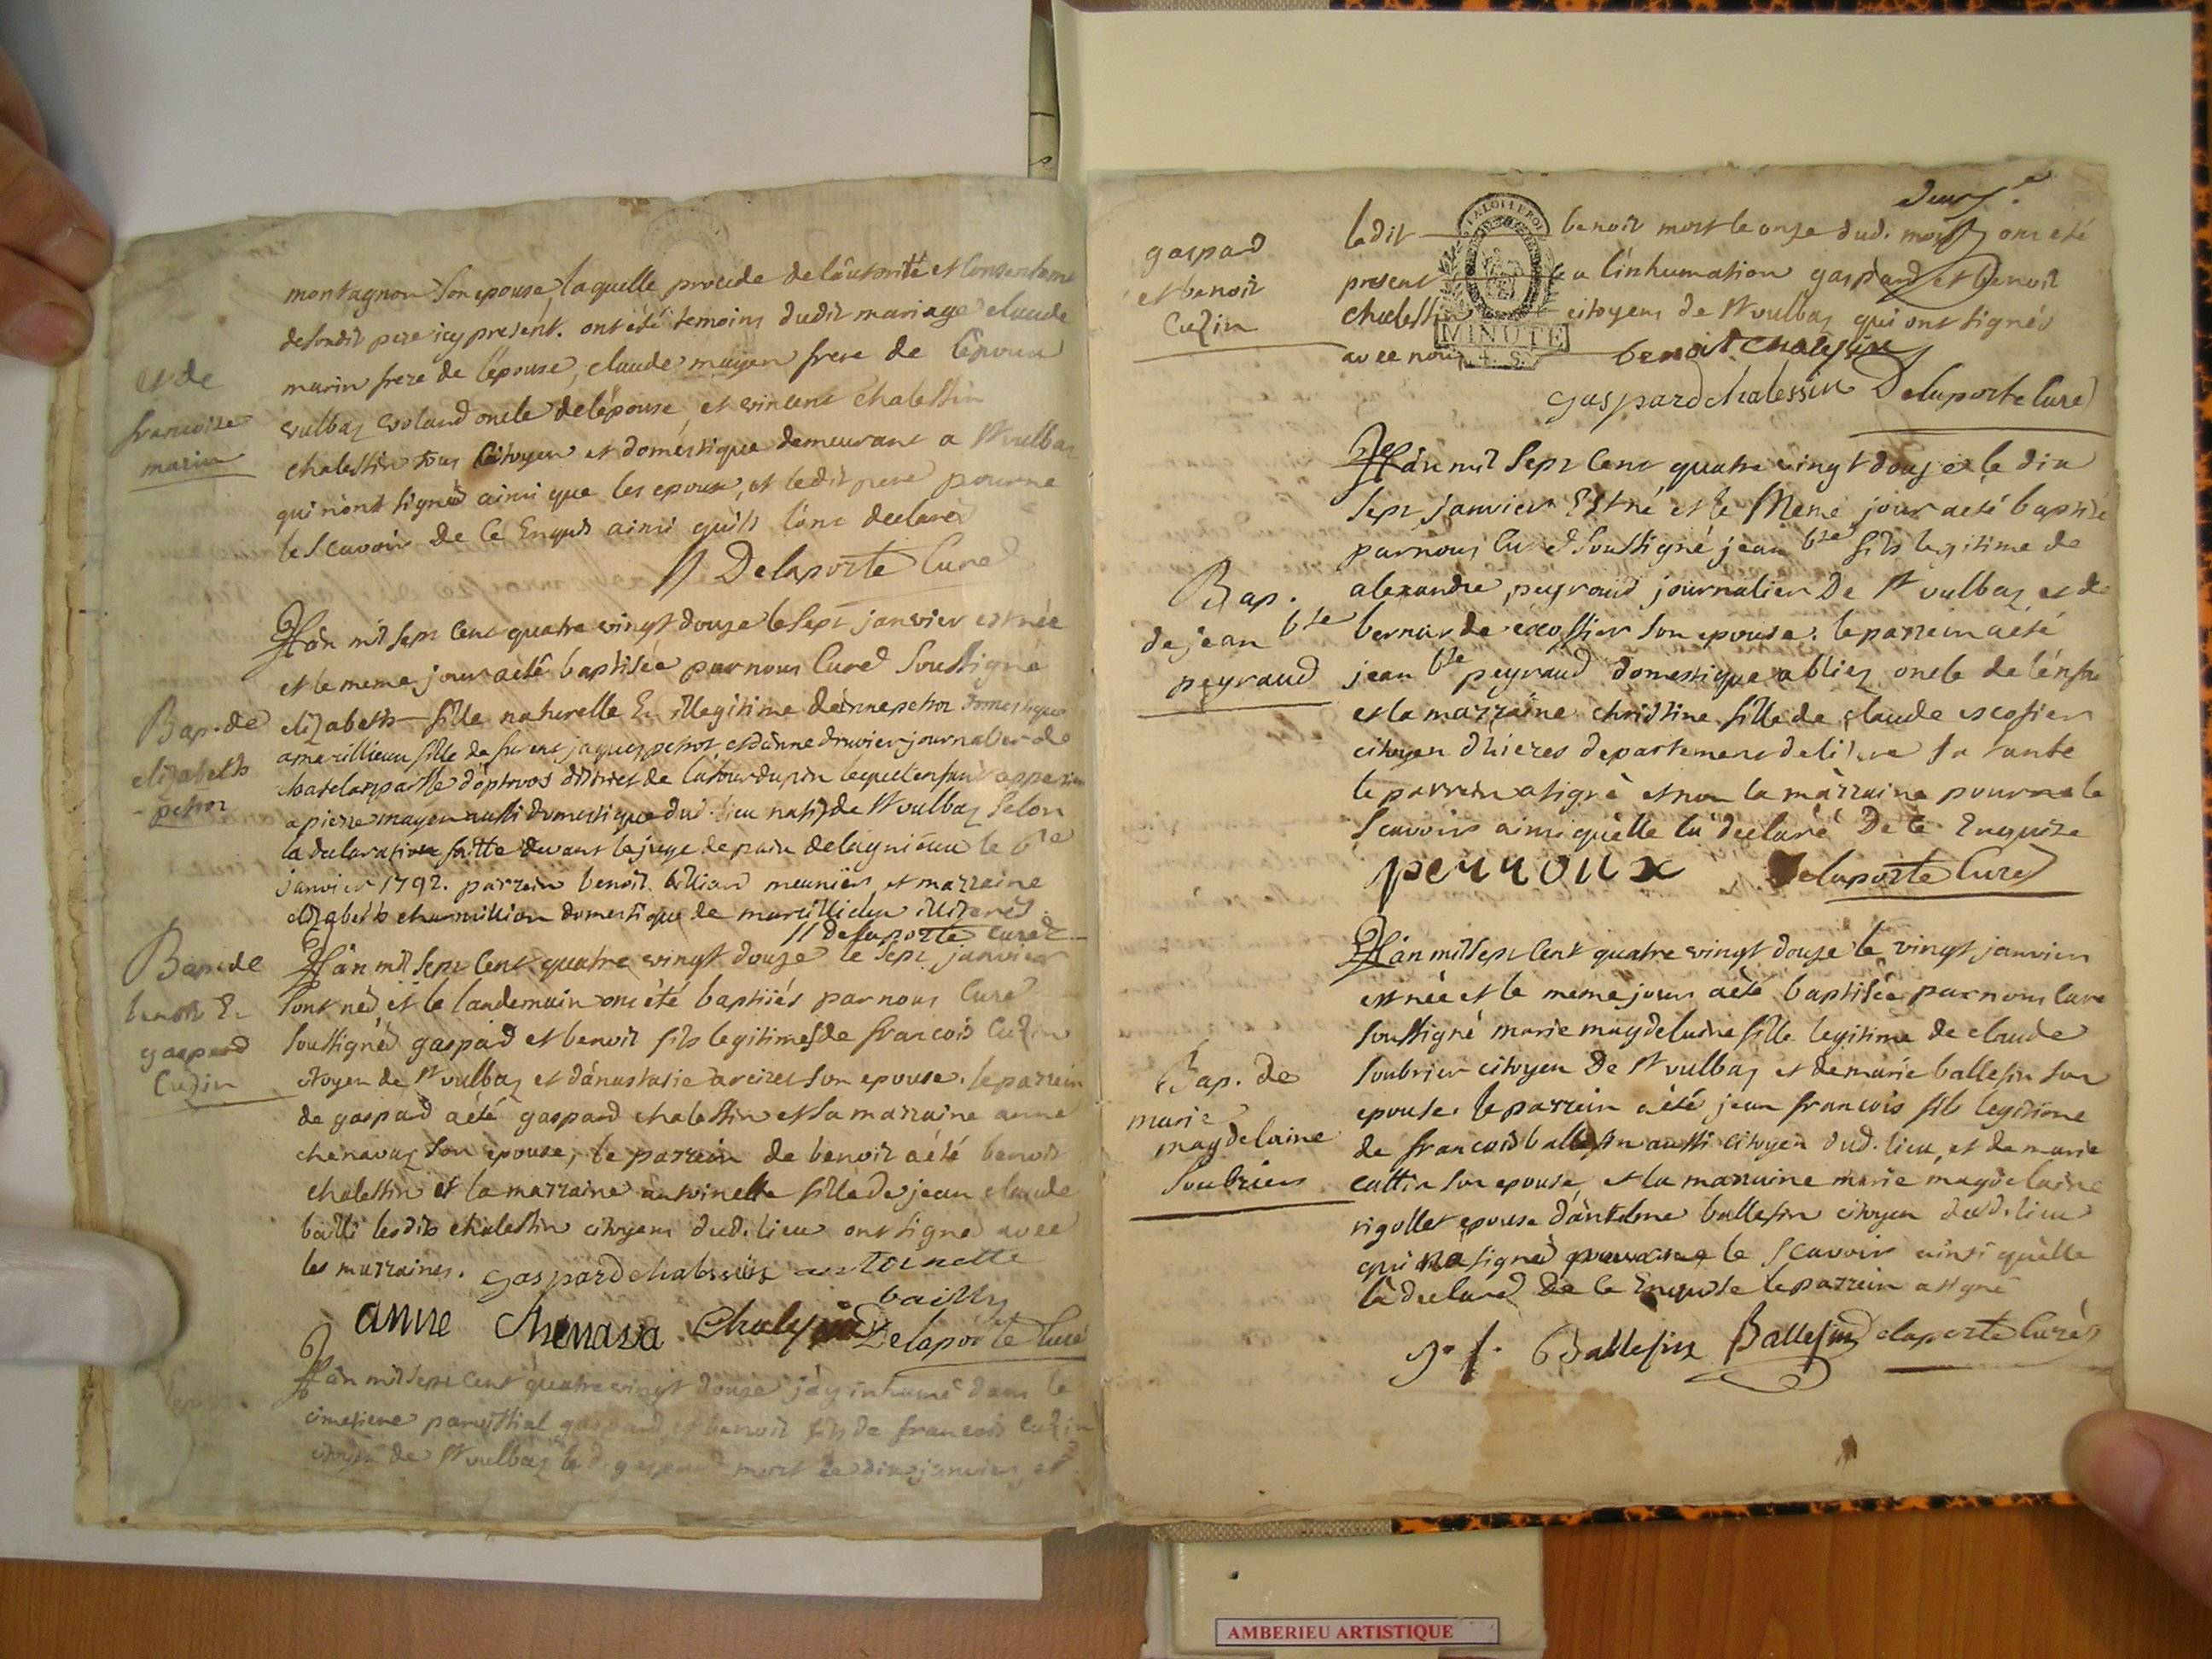 montagnon son epouse, laquelle procede de lautorité et consenteme
de sondit pere icy present. ont été temoins dudit mariage claude
marin frere de l'epouse, claude mayen frere de l'epoux
vulbaz voland oncle de lépouse, et vincent chalessin
chalessin tous citoyen et doméstique demeurant a St vulbaz
qui n'ont signéd ainsi que les epoux, et ledit pere pour ne
le scavoir de ce Enquis ainsi qu'ils l'ont declaré
Delaporte Curé
et de
francoise
marin
L'an mil sept cent quatre vingt douze le sept janvier est née
et le meme jour a eté baptisée par nous Curé soussigné
elizabeth fille naturelle Et illegitime d'anne petron domestique
a marillieu fille de furent jaques petrot et d'anne druvier journalier de
district de la tour du pin lequel enfant appartien
a pierre mayen aussi domestique dud. lieu natif de St vulbaz selon
la declaration faitte devant le juge de paix de lagnieu le 6e
janvier 1792. parrein benoit billiard meunier et marraine
elizabeth charmillion domestique de illiterés.
Delaporte curé
Bap. de
elizabeth
petron
L'an mil sept cent quatre vingt douze le sept janvier
sont néd et le landemain ont été baptisés par nous Curé
soussignéd gaspad et benoit fils legitimes de francois Cuzin
citoyen de St vulbaz et d'anastasie son epouse. le parrein
de gaspad a été gaspard chalessin et sa marraine anne
chenavaz son epouse, le parrein de benoit a été benoit
chalessin et la marraine antoinette fille de jean claude
bailli lesdits chalessin citoyens dud. lieu ont signé avec
les marraines. gaspard chalessin antoinette
bailly
anne Chenava Chalessin Delaporte Curé
Bap. de
benoit Et
gaspard
Cuzin
L'an mil sept cent quatre vingt douze j'ay inhumé dans le
cimetiere paroissial gaspard et benoit fils de francois Cuzin
citoyen de St vulbaz led. gaspard mort le dix janvier, et
deux
gaspad
et benoit
Cuzin
LA LOI LE ROI
MINUTE
4. S.
ledit benoit mort le onze dud. mois, ont eté
present a l'inhumation gaspard et benoit
chalessin citoyens de St vulbaz qui ont signés
avec nous benoit chalessin
gaspard chalessin Delaporte Curé
L'an mil sept cent quatre vingt douze le dix
sept janvier Est né et le Meme jour a eté baptisé
par nous Curé soussigné jean bte fils legitime de
alexandre peyraud journalier De St vulbaz et de
bernarde escoffier son epouse. le parrein a été
jean bte peyraud domestique a bliez oncle de l'enfant
et la marraine christine fille de claude escofier
citoyen d'hieres departement de lisere sa tante
le parrein a signé et non la marraine pour ne le
scavoir ainsi quelle la declaré De ce Enquise
peyroux Delaporte Curé
Bap.
de jean bte
peyraud
L'an mil sept cent quatre vingt douze le vingt janvier
est née et le meme jour a été baptisée par nous curé
soussigné marie magdelaine fille legitime de claude
soubrier citoyen De St vulbaz et de marie ballesin son
epouse. le parrein a été jean francois fils legitime
de francois ballesin aussi citoyen dud. lieu, et de marie
cattin son epouse et la marraine marie magdelaine
rigollet epouse d'antelme ballesin citoyen dud. lieu
qui na signéd pour ne le scavoir ainsi qu'elle
la declaré De ce Enquise le parrein a signé
j. f. Ballesin Ballesin Delaporte Curé
Bap. de
marie
magdelaine
soubrier
AMBERIEU ARTISTIQUE